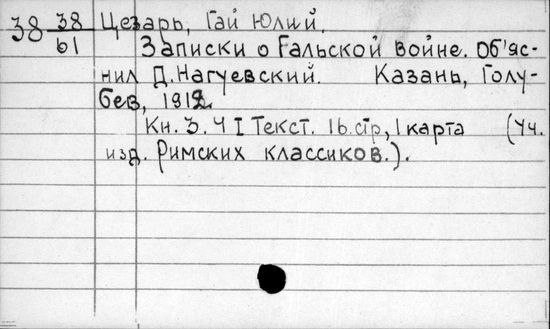 38 38/61 Цезарь, Гай Юлий.
Записки о Гальской войне. Об'яс-
нил Д. Нагуевский. Казань, Голу-
бев, 1912.
Кн. 3. Ч I Текст. 16 стр, 1 карта (Уч.
изд. Римских классиков.).